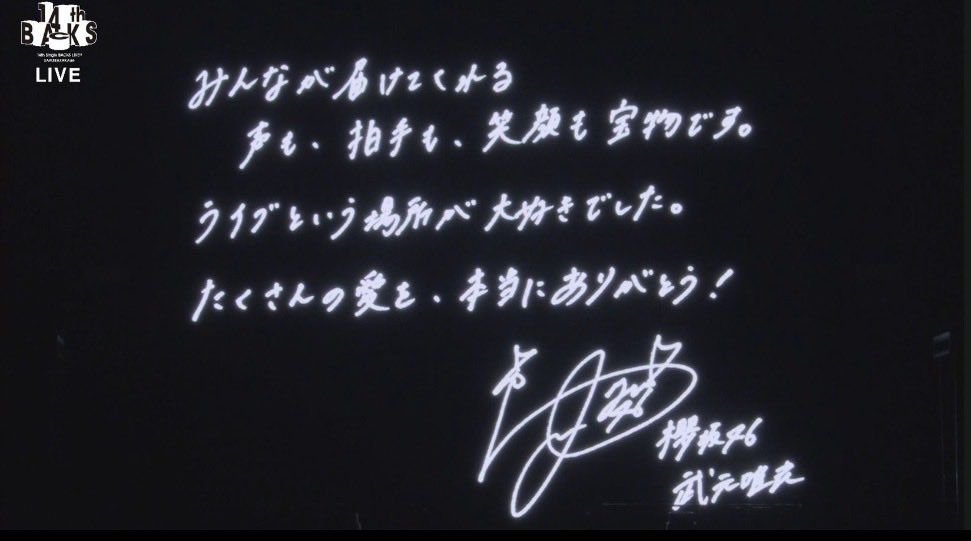 14th
BACKS
14th Single BACKS LIVE!!
SAKURAZAKA46
LIVE
みんなが届けてくれる
声も、拍手も、笑顔も宝物です。
ライブという場所が大好きでした。
たくさんの愛を、本当にありがとう!
櫻坂46
武元唯衣